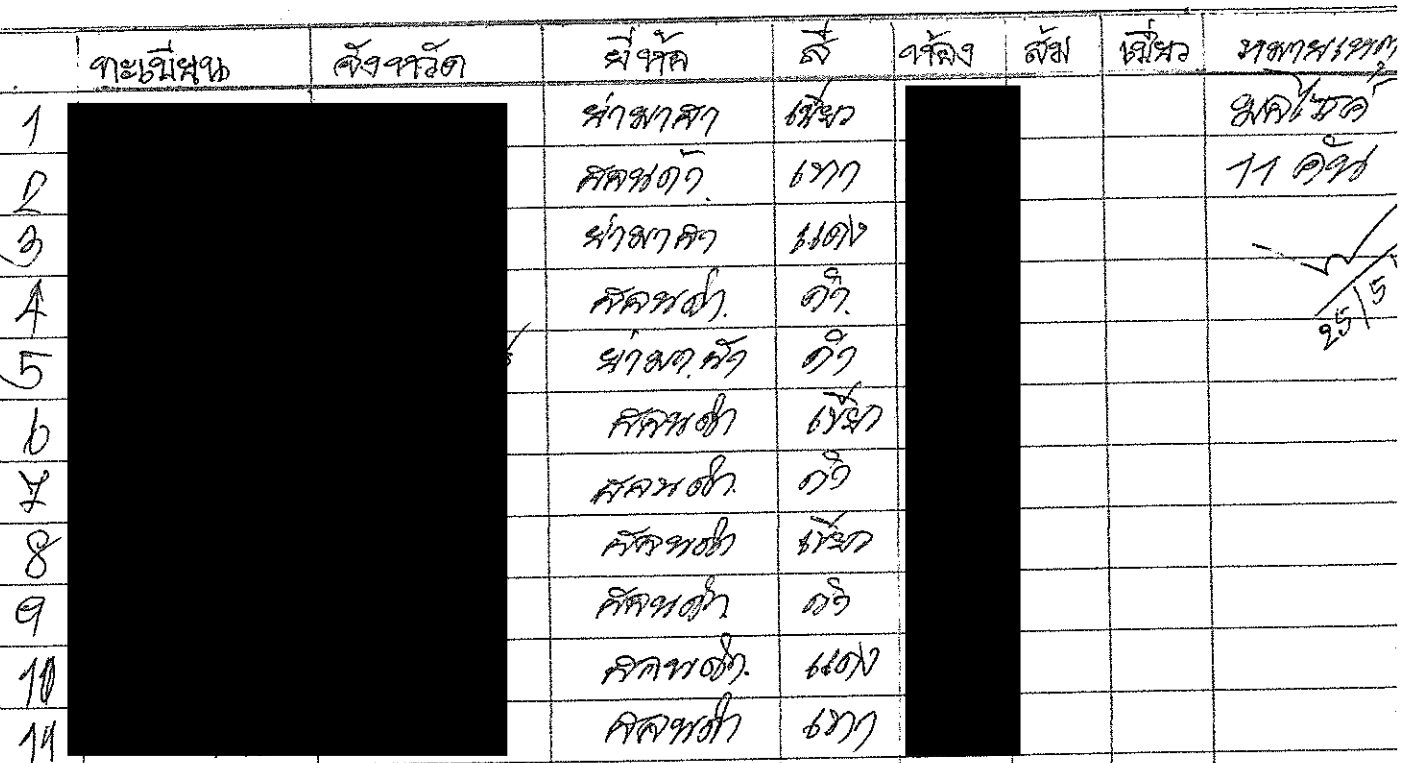 ทะเบียน จังหวัด ยี่ห้อ สี ห้อง ส้ม เขียว หมายเหตุ
1 ยามาฮา เขียว มอไซค์
2 ฮอนด้า เทา 11 คัน
3 ยามาฮา แดง
4 ฮอนด้า ดำ 25/5
5 ยามาฮ่า ดำ
6 ฮอนด้า เขียว
7 ฮอนด้า ดำ
8 ฮอนด้า เขียว
9 ฮอนด้า ดำ
10 ฮอนด้า แดง
11 ฮอนด้า เทา